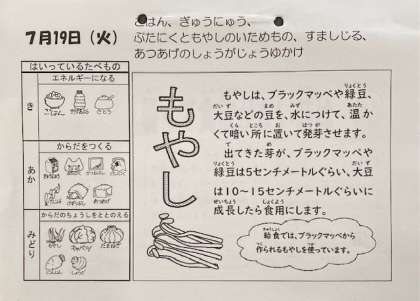 7月19日（火）
ごはん、ぎゅうにゅう、
ぶたにくともやしのいためもの、すましじる、
あつあげのしょうがじょうゆかけ
はいっているたべもの
エネルギーになる
き
ごはん
さとう
からだをつくる
あか
からだのちょうしをととのえる
みどり
もやし
キャベツ
もやし
もやしは、ブラックマッペや緑豆、
大豆などの豆を、水につけて、温か
くて暗い所に置いて発芽させます。
出てきた芽が、ブラックマッペや
緑豆は5センチメートルぐらい、大豆
は10～15センチメートルぐらいに
成長したら食用にします。
給食では、ブラックマッペから
作られるもやしを使っています。